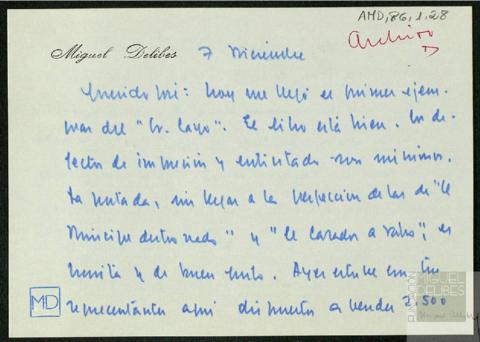 AMD,86,1.28
Archivo
Miguel Delibes 7 Diciembre
Querido mi: hoy me llegó el primer ejem
plar del "Sr. Cayo". El libro está bien. Los de
fectos de impresión y entintado son mínimos.
La portada, sin llegar a la perfección de las de "El
Príncipe destronado" y "El cazador a rabo", es
bonita y de buen gusto. Ayer estuve con tu
representante aquí dispuesto a vender 2.500
MD
FUNDACIÓN
MIGUEL
DELIBES